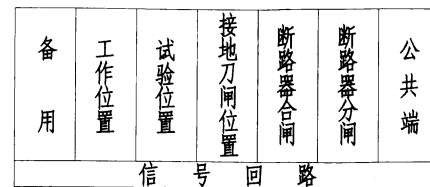 备用
工作位置
试验位置
接地刀闸位置
断路器合闸
断路器分闸
公共端
信号回路